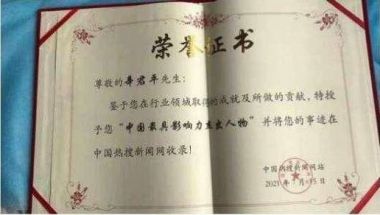 荣誉证书
尊敬的寻君平先生：
鉴于您在行业领域取得的成就及所做的贡献，特授
于您“中国最具影响力杰出人物”并将您的事迹在
中国热搜新闻网收录！
中国热搜新闻网站
2021年7月15日